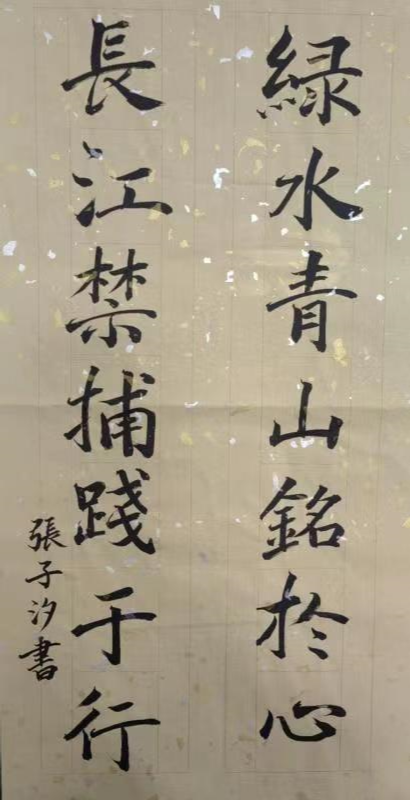 綠水青山銘於心
長江禁捕踐于行
張子汐書